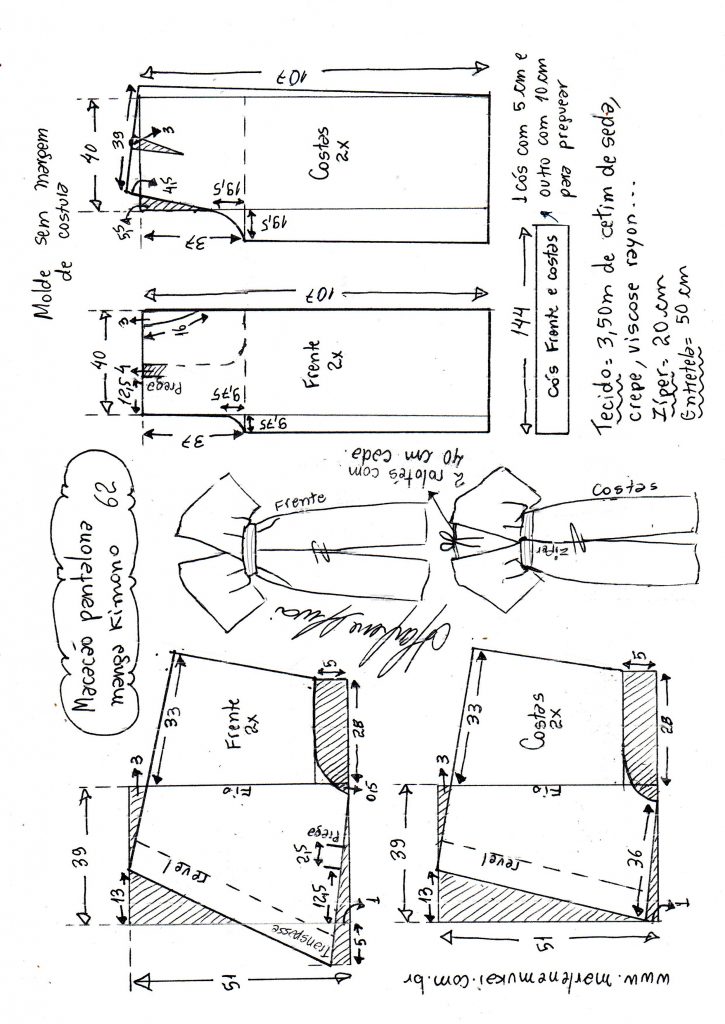 Macacão pantalona
manga Kimono 62
Molde sem margem
de costura
107
40
39
3
4,5
5,5
37
19,5
19,5
Costas
2x
107
40
3
16
4
12,5
Prega
37
9,75
9,75
Frente
2x
144
Cós Frente e costas
1 cós com 5 cm e
outro com 10 cm
para preguear
Tecido = 3,50m de cetim de seda,
crepe, viscose rayon...
Zíper = 20 cm
Entretela = 50 cm
Frente
2 rolotês com
40 cm cada.
Costas
Zíper
33
3
39
13
51
Frente
2x
Fio
revel
Transpasse
Prega
2,5
12,5
5
28
0,5
5
1
33
3
39
13
51
Costas
2x
Fio
revel
36
5
28
1
www.marlenemukai.com.br